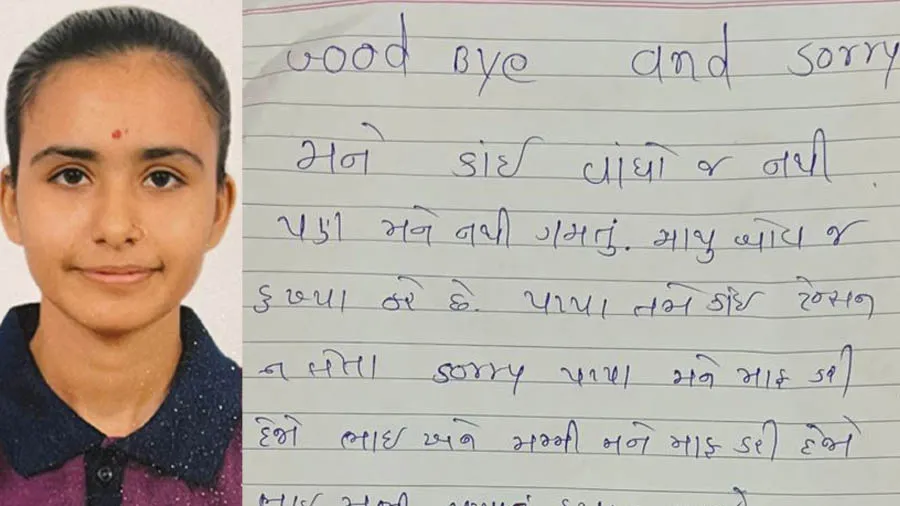 Good Bye and sorry
મને કાંઈ વાંધો જ નથી
પણ મને નથી ગમતું. માથુ બોવ જ
દુખ્યા કરે છે. પપ્પા તમે કાંઇ ટેન્સન
ન લેતા sorry પપ્પા મને માફ કરી
દેજો ભાઇ અને મમ્મી મને માફ કરી દેજો
ભાઇ